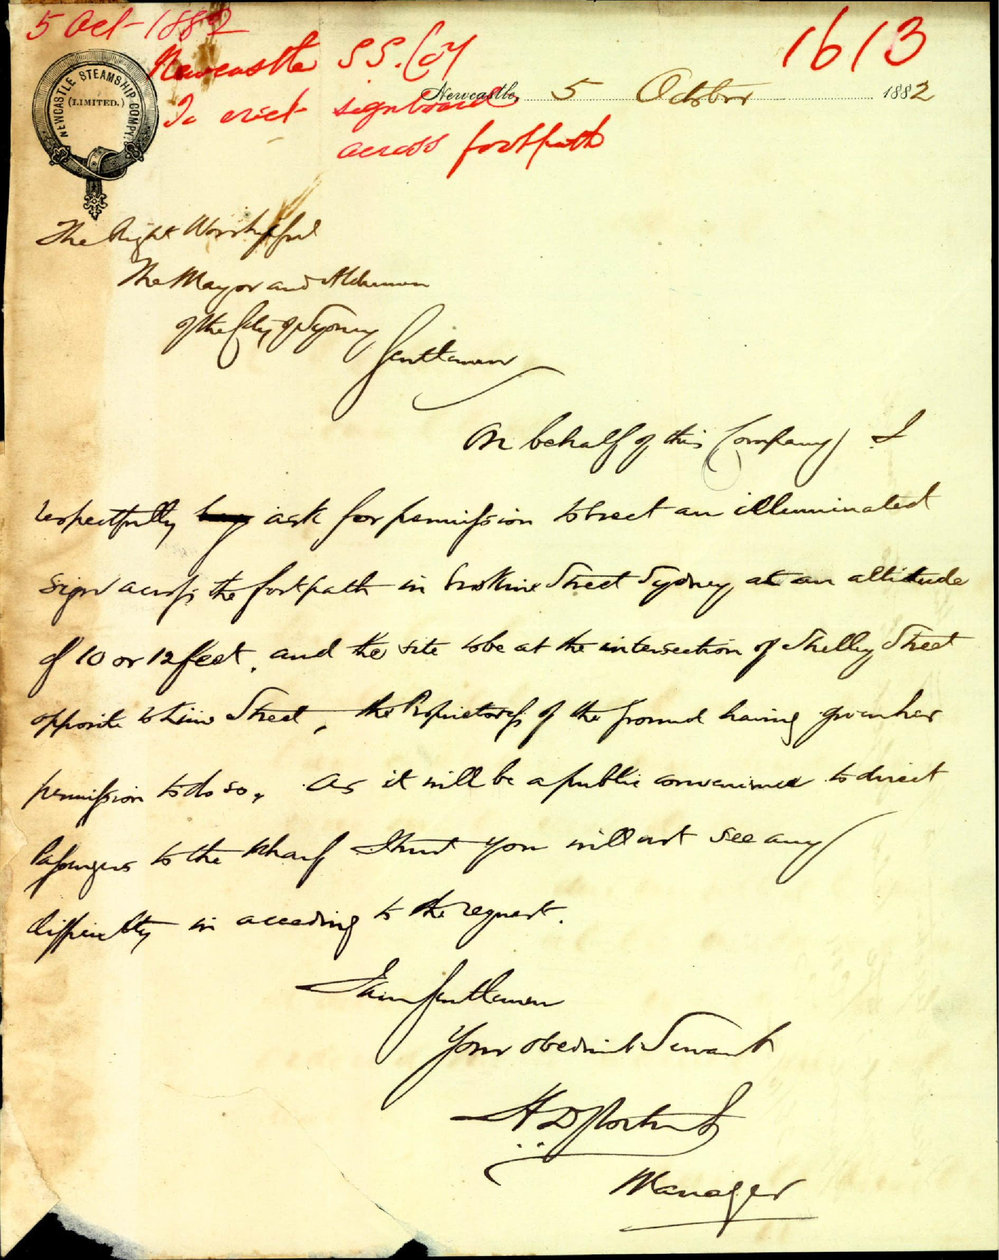 5 Oct 1882
1613
Newcastle S S. Coy
To erect signboard
across footpath
NEWCASTLE STEAMSHIP COMPY.
(LIMITED.)
Newcastle, 5 October 1882
The Right Worshipful
The Mayor and Aldermen
of the City of Sydney
Gentlemen
On behalf of this Company I
respectfully ask for permission to erect an illuminated
sign across the footpath in Erskine Street Sydney, at an altitude
of 10 or 12 feet, and the site to be at the intersection of Shelley Street
opposite to Lime Street, the Proprietress of the ground having given her
permission to do so. As it will be a public convenience to direct
Passengers to the Wharf I trust you will not see any
difficulty in acceding to the request.
I am Gentlemen
Your obedient Servant
Manager